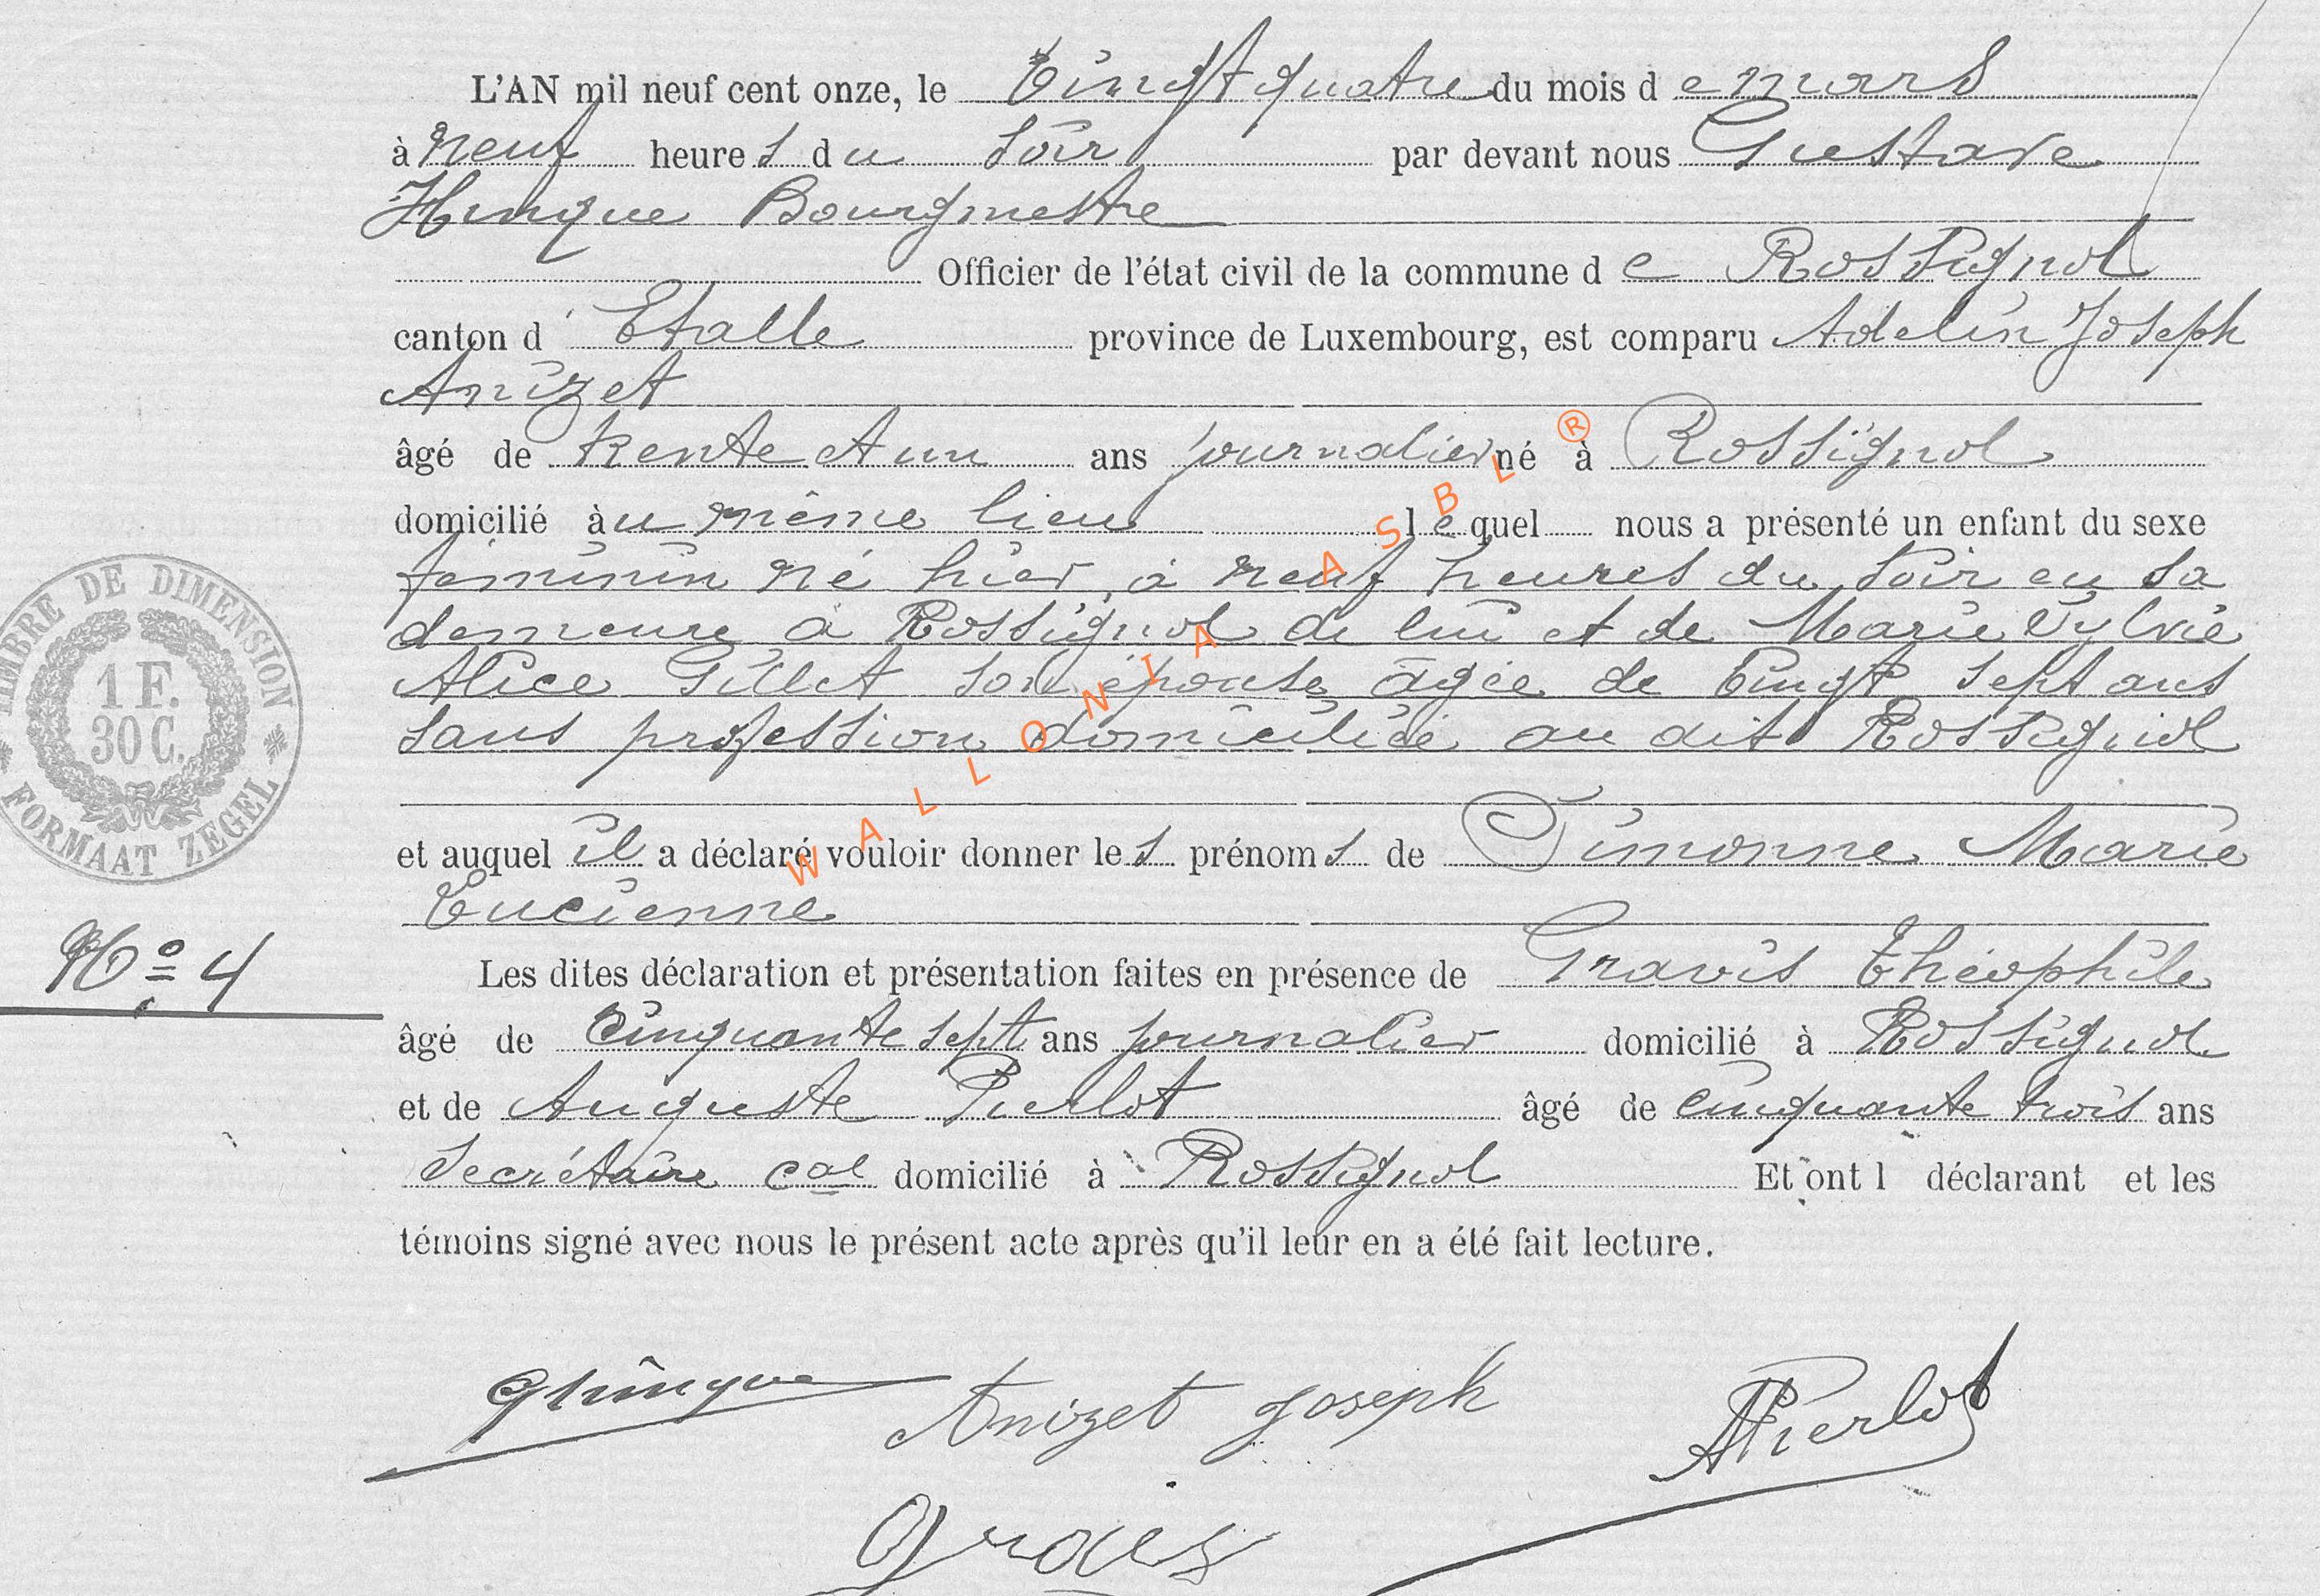 L'AN mil neuf cent onze, le vingt quatre du mois de mars
à neuf heures du soir par devant nous Gustave
Hinque Bourgmestre
Officier de l'état civil de la commune de Rossignol
canton d'Etalle province de Luxembourg, est comparu Adelin Joseph
Anizet
âgé de trente et un ans journalier né à Rossignol
domicilié au même lieu lequel nous a présenté un enfant du sexe
féminin né hier, à neuf heures du soir en sa
demeure à Rossignol de lui et de Marie Sylvie
Alice Gillet son épouse âgée de vingt sept ans
sans profession domiciliée au dit Rossignol
et auquel il a déclaré vouloir donner les prénoms de Simonne Marie
Lucienne
Les dites déclaration et présentation faites en présence de Gravis Théophile
âgé de cinquante sept ans journalier domicilié à Rossignol
et de Auguste Pierlot âgé de cinquante trois ans
Secrétaire cal domicilié à Rossignol Et ont l déclarant et les
témoins signé avec nous le présent acte après qu'il leur en a été fait lecture.
TIMBRE DE DIMENSION
1 F.
30 C.
FORMAAT ZEGEL
No 4
WALLONIA ASBL ®
GHinque
Anizet Joseph
APierlot